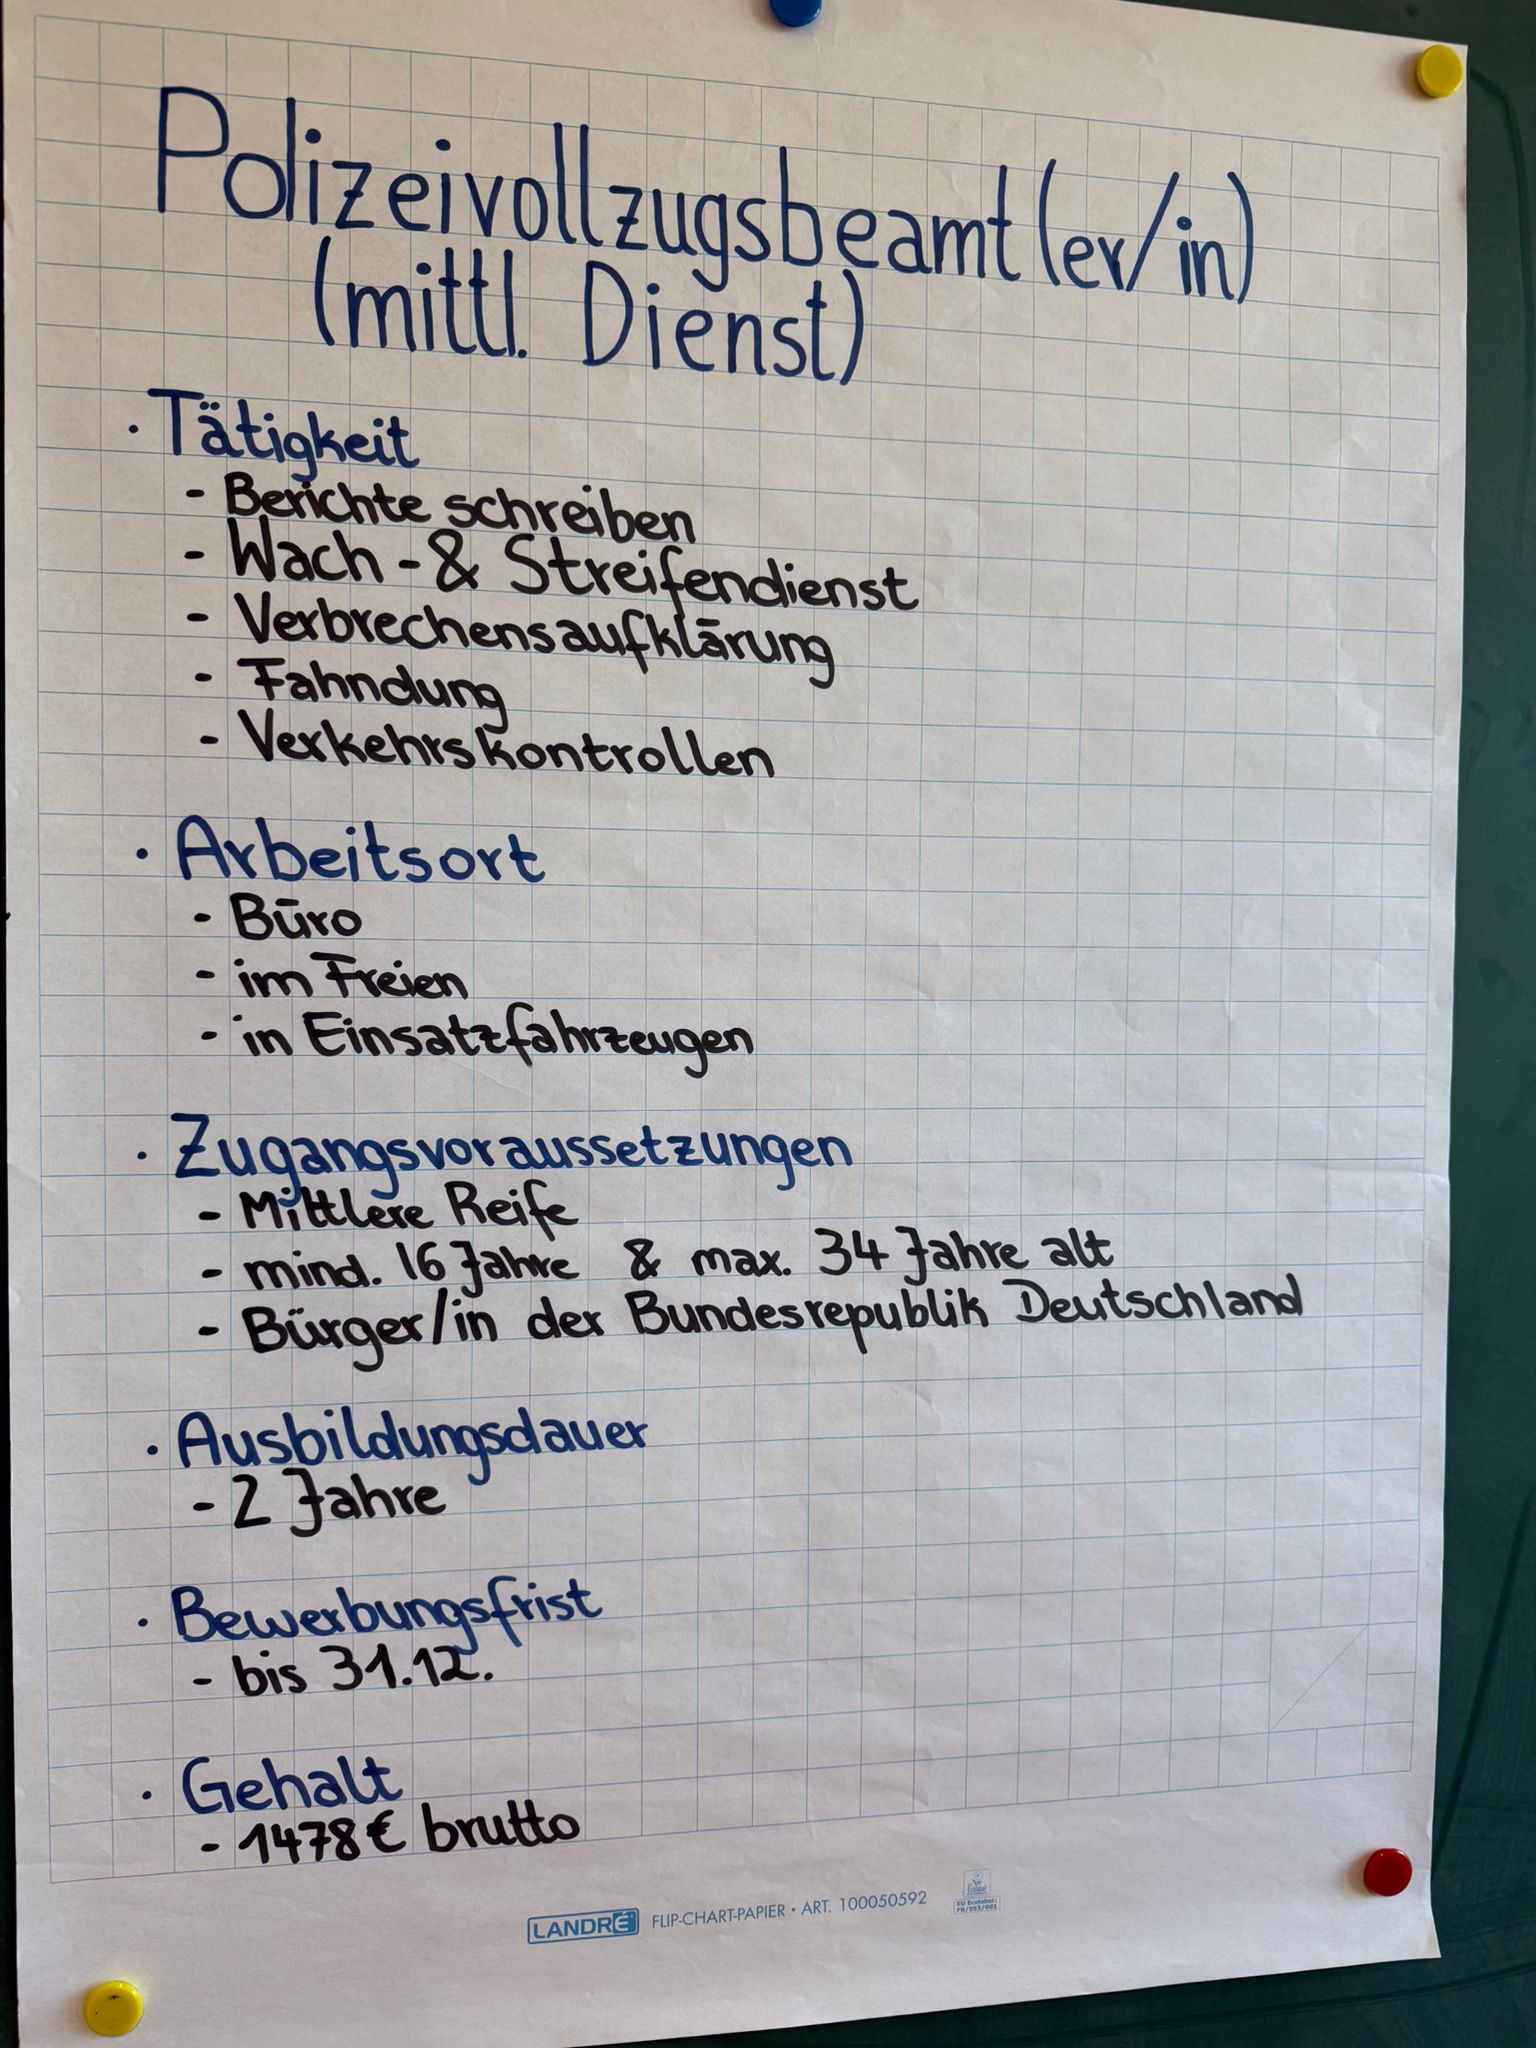 Polizeivollzugsbeamt(er/in)
(mittl. Dienst)
· Tätigkeit
- Berichte schreiben
- Wach-& Streifendienst
- Verbrechensaufklärung
- Fahndung
- Verkehrskontrollen
· Arbeitsort
- Büro
- im Freien
- in Einsatzfahrzeugen
· Zugangsvoraussetzungen
- Mittlere Reife
- mind. 16 Jahre & max. 34 Jahre alt
- Bürger/in der Bundesrepublik Deutschland
· Ausbildungsdauer
- 2 Jahre
· Bewerbungsfrist
- bis 31.12.
· Gehalt
- 1478€ brutto
LANDRÉ FLIP-CHART-PAPIER • ART. 100050592
EU Ecolabel:
FR/053/001